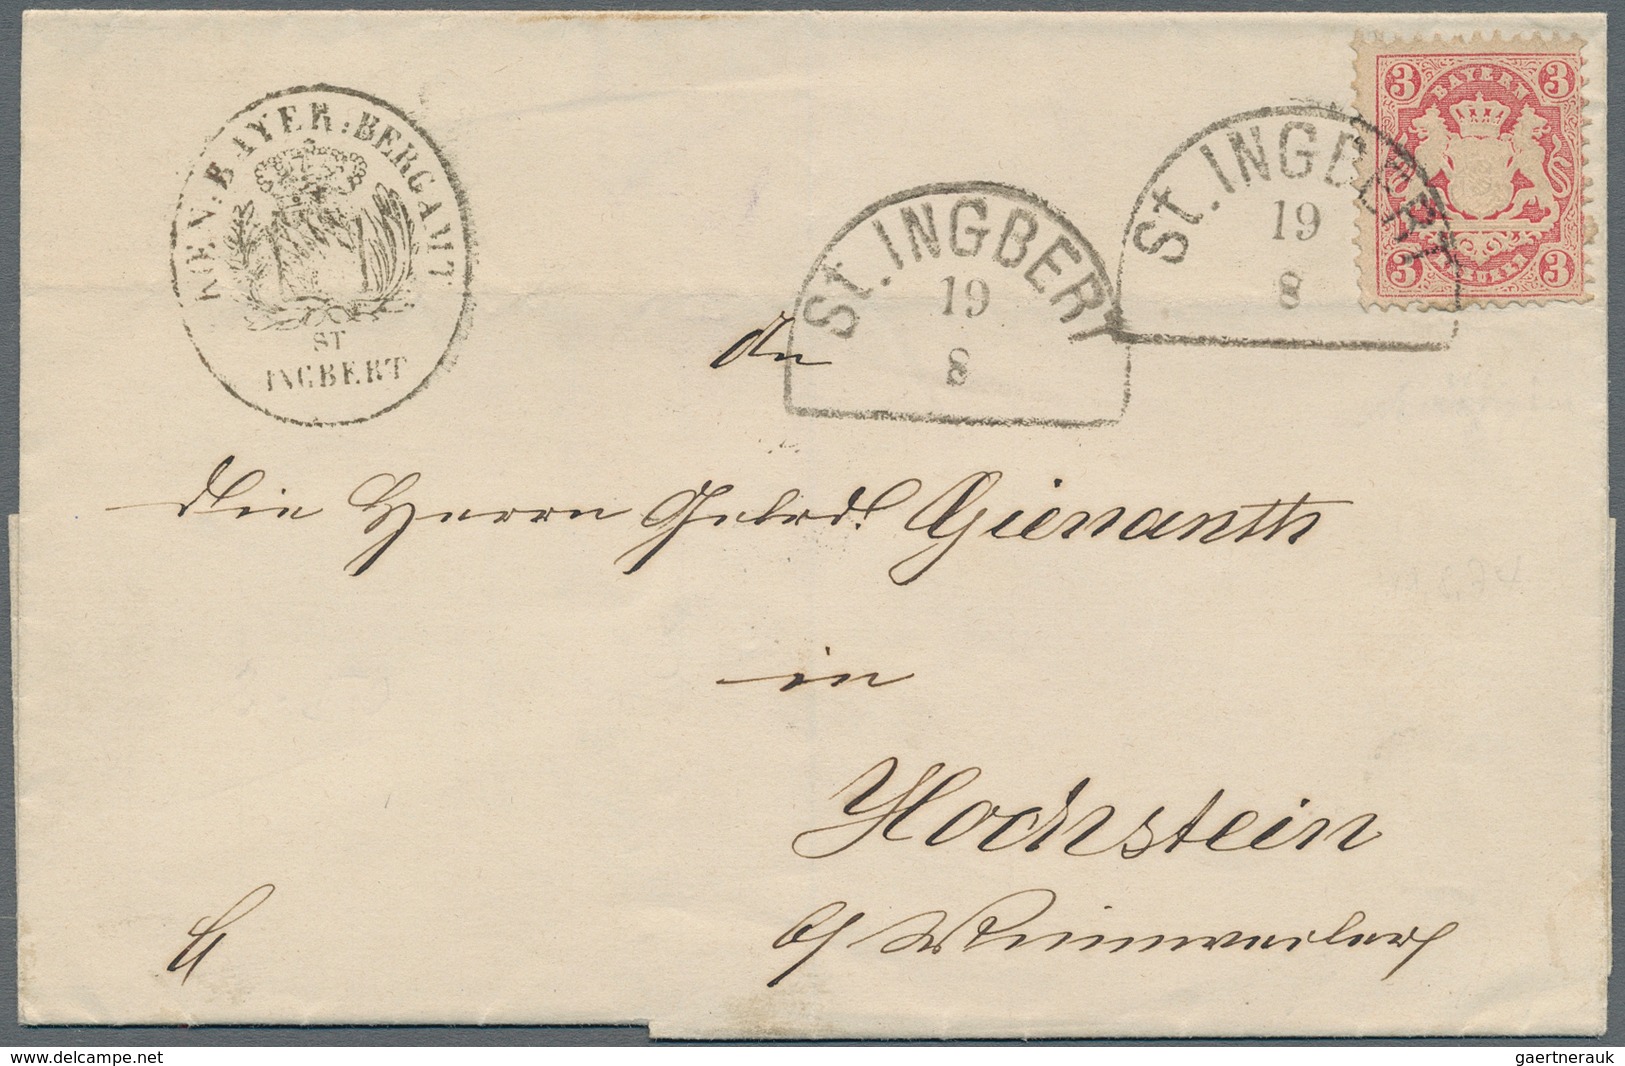 KOEN. BAYER: BERGAMT
ST
INGBERT
St. INGBERT
19
8
St. INGBERT
19
8
3 3
BAYERN
KREUZER
3 3
An
die Herrn Gebrd. Gienanth
in
Hochstein
b/ Winnweiler
delcampe.net
gaertnerauk